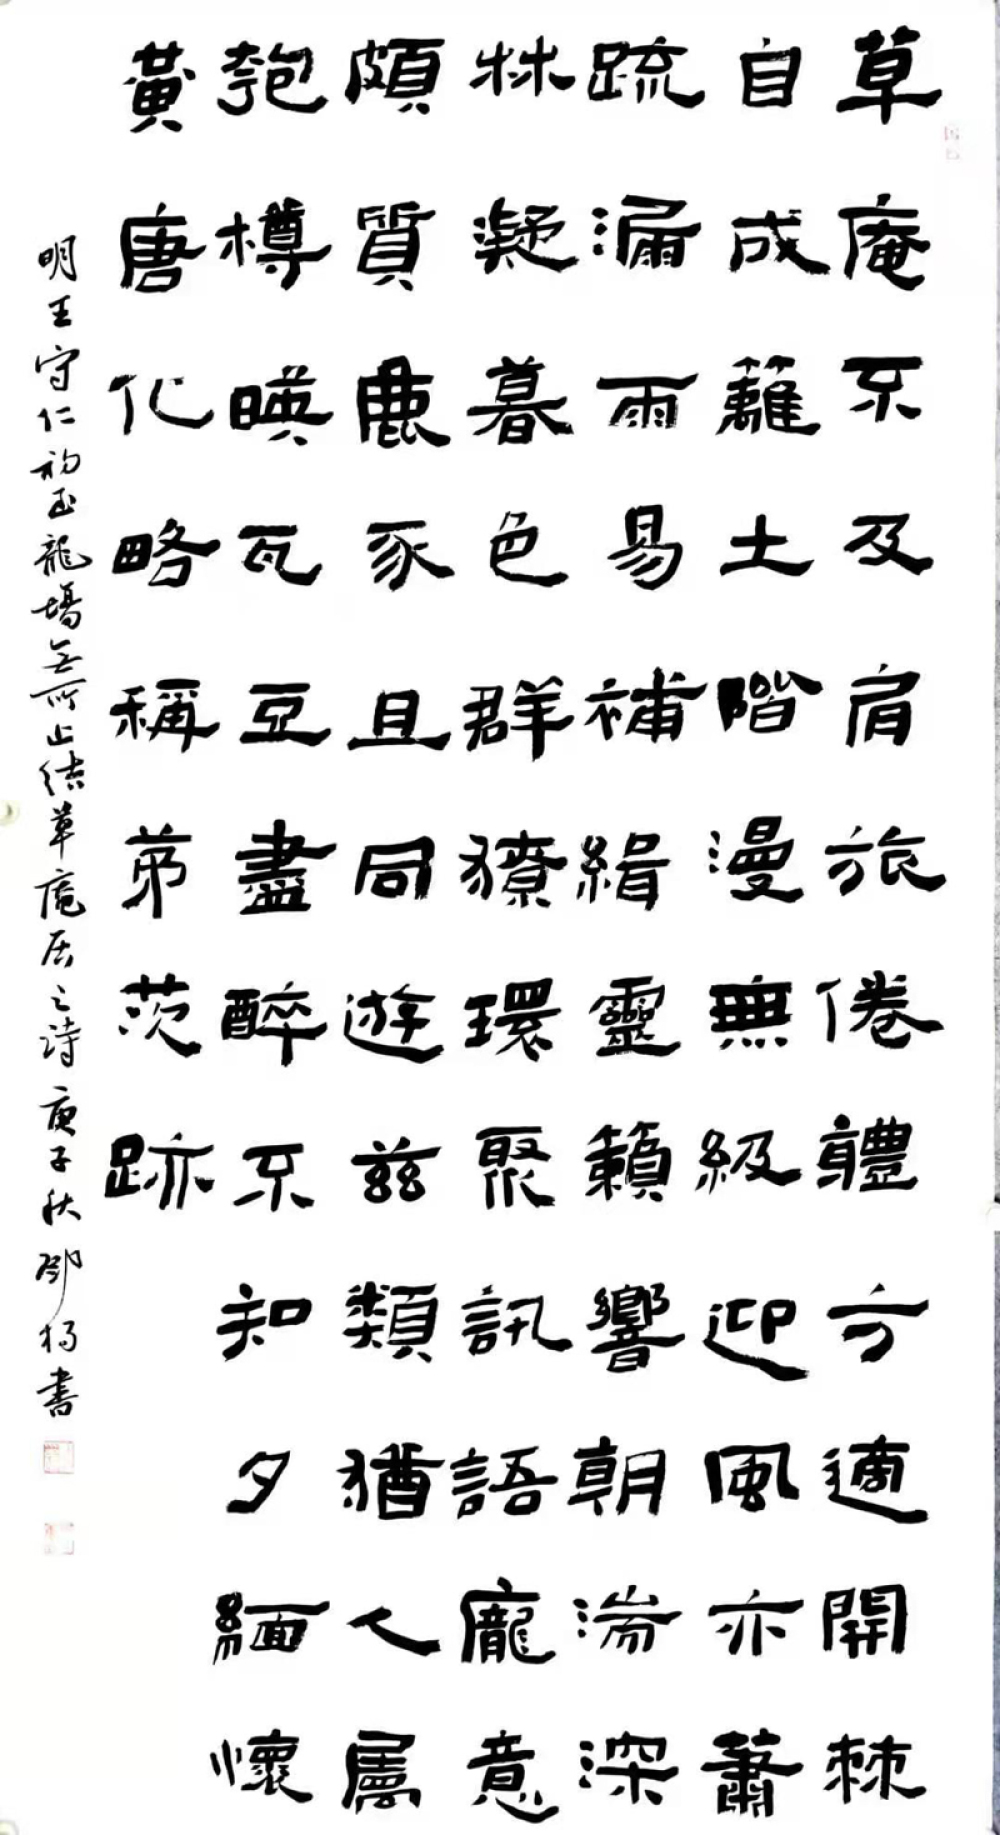 草庵不及肩旅倦體方適開棘
自成籬土階漫無級迎風亦蕭
疏漏雨易補緝靈籟響朝湍深
林凝暮色群獠環聚訊語龐意
頗質鹿豕且同遊茲類猶人屬
匏樽映瓦豆盡醉不知夕緬懷
黃唐化略稱茅茨跡
明王守仁初至龍場無所止結草庵居之詩庚子秋鄧楊書